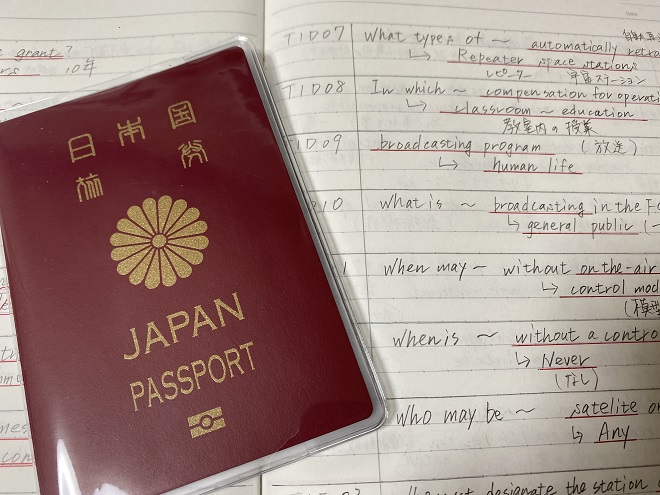 grant?
10年
日本国
旅券
JAPAN
PASSPORT
T1D07 What type of ~ automatically
↳ Repeater space stations
レピーター 宇宙ステーション
T1D08 In which ~ compensation for
↳ classroom ~ education
教室内の授業
T1D09 broadcasting program (放送)
↳ human life
10 what is ~ broadcasting in the
↳ general public
When may ~ without on-the-air
↳ control
(模型
when is ~ without a
↳ Never
(なし)
Who may be ~ satelite
↳ Any
designate the station